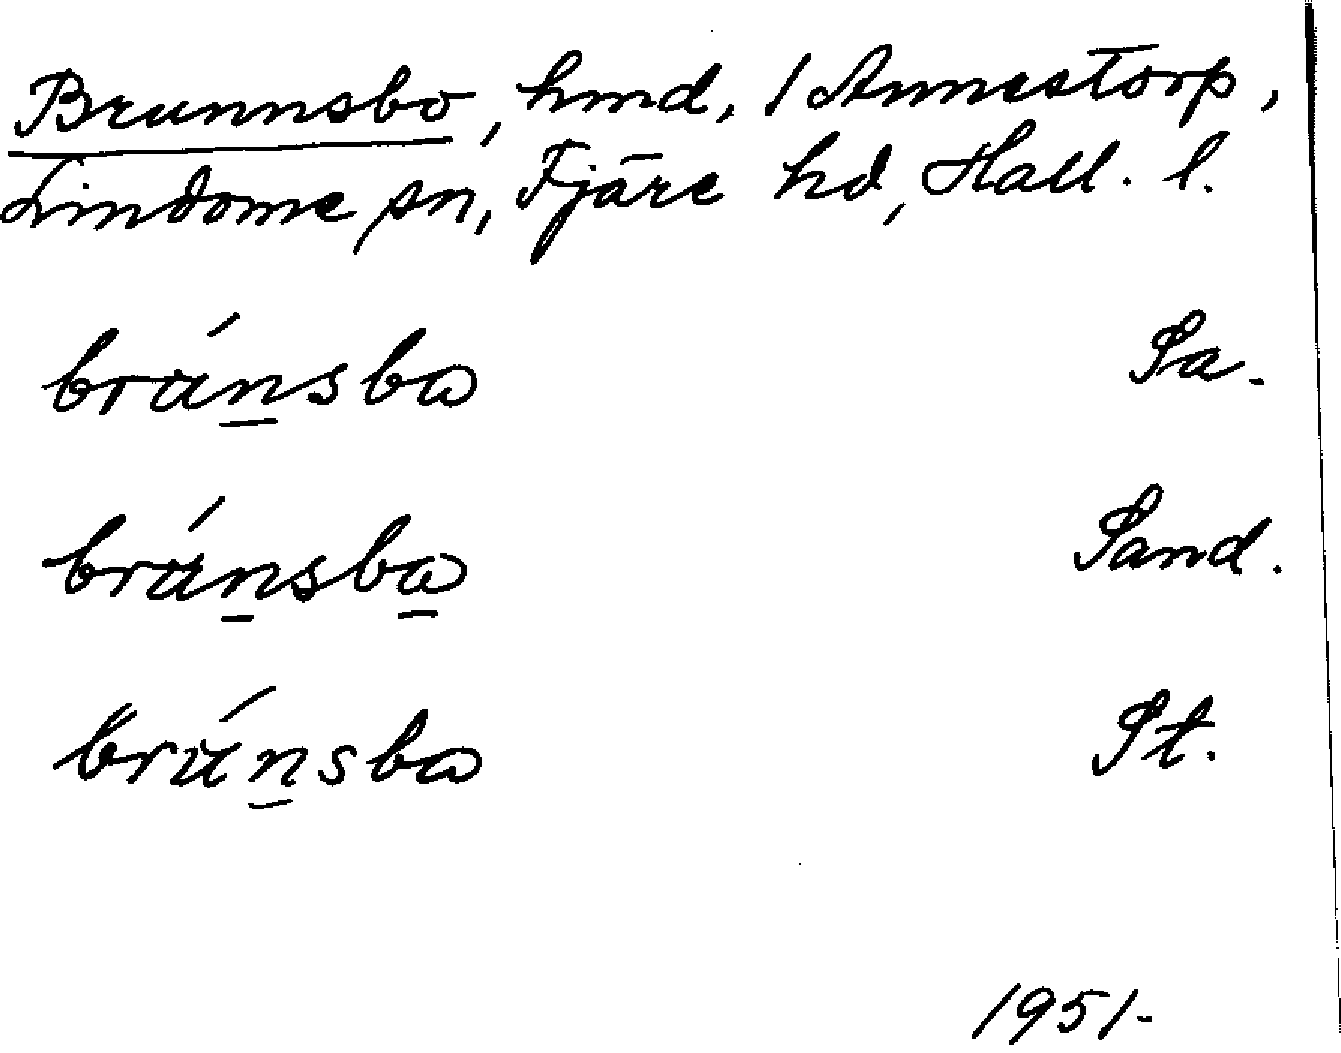 Brunnsbo, hmd, 1 Annestorp,
Lindome sn, Fjäre hd, Hall. l.
bránsba Sa.
bránsba Sand.
brúnsba St.
1951.